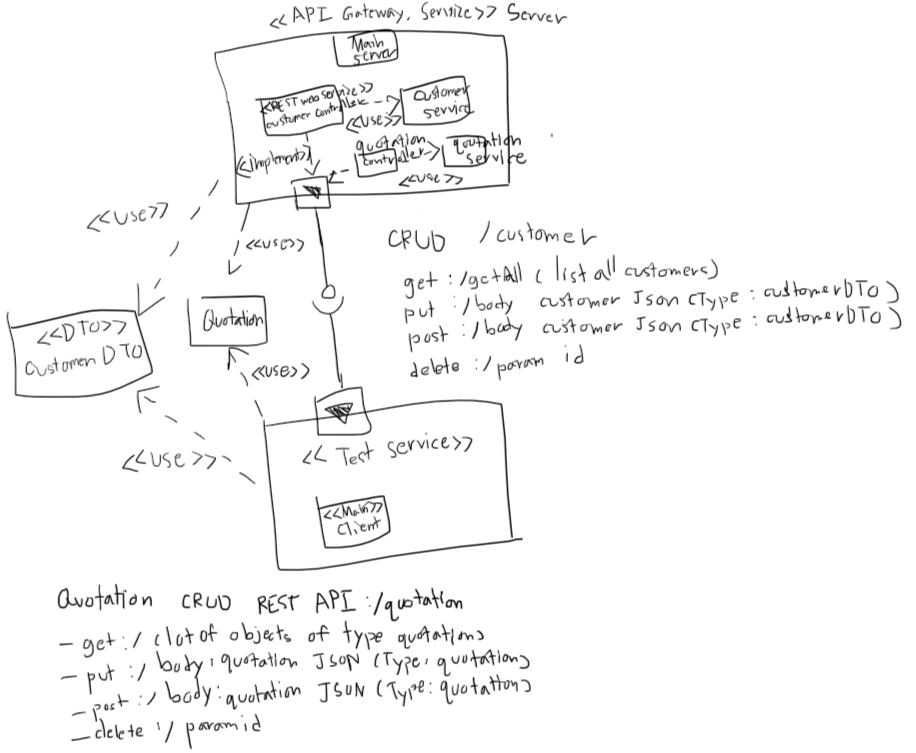 <<API Gateway, Service>> Server
Main
server
<<REST web service>>
customer controller
customer
service
<<use>>
quotation
controller
quotation
service
<<implements>>
<<use>>
<<use>>
<<use>>
CRUD /customer
get :/getAll ( list all customers)
put :/body customer Json (Type : customerDTO)
post :/body customer Json (Type : customerDTO)
delete :/param id
Quotation
<<DTO>>
Customer DTO
<<use>>
<<use>>
<< Test service>>
<<Main>>
Client
Quotation CRUD REST API :/quotation
- get :/ (lot of objects of type quotation)
- put :/ body: quotation JSON (Type: quotation)
- post :/ body: quotation JSON (Type: quotation)
- delete :/ param id